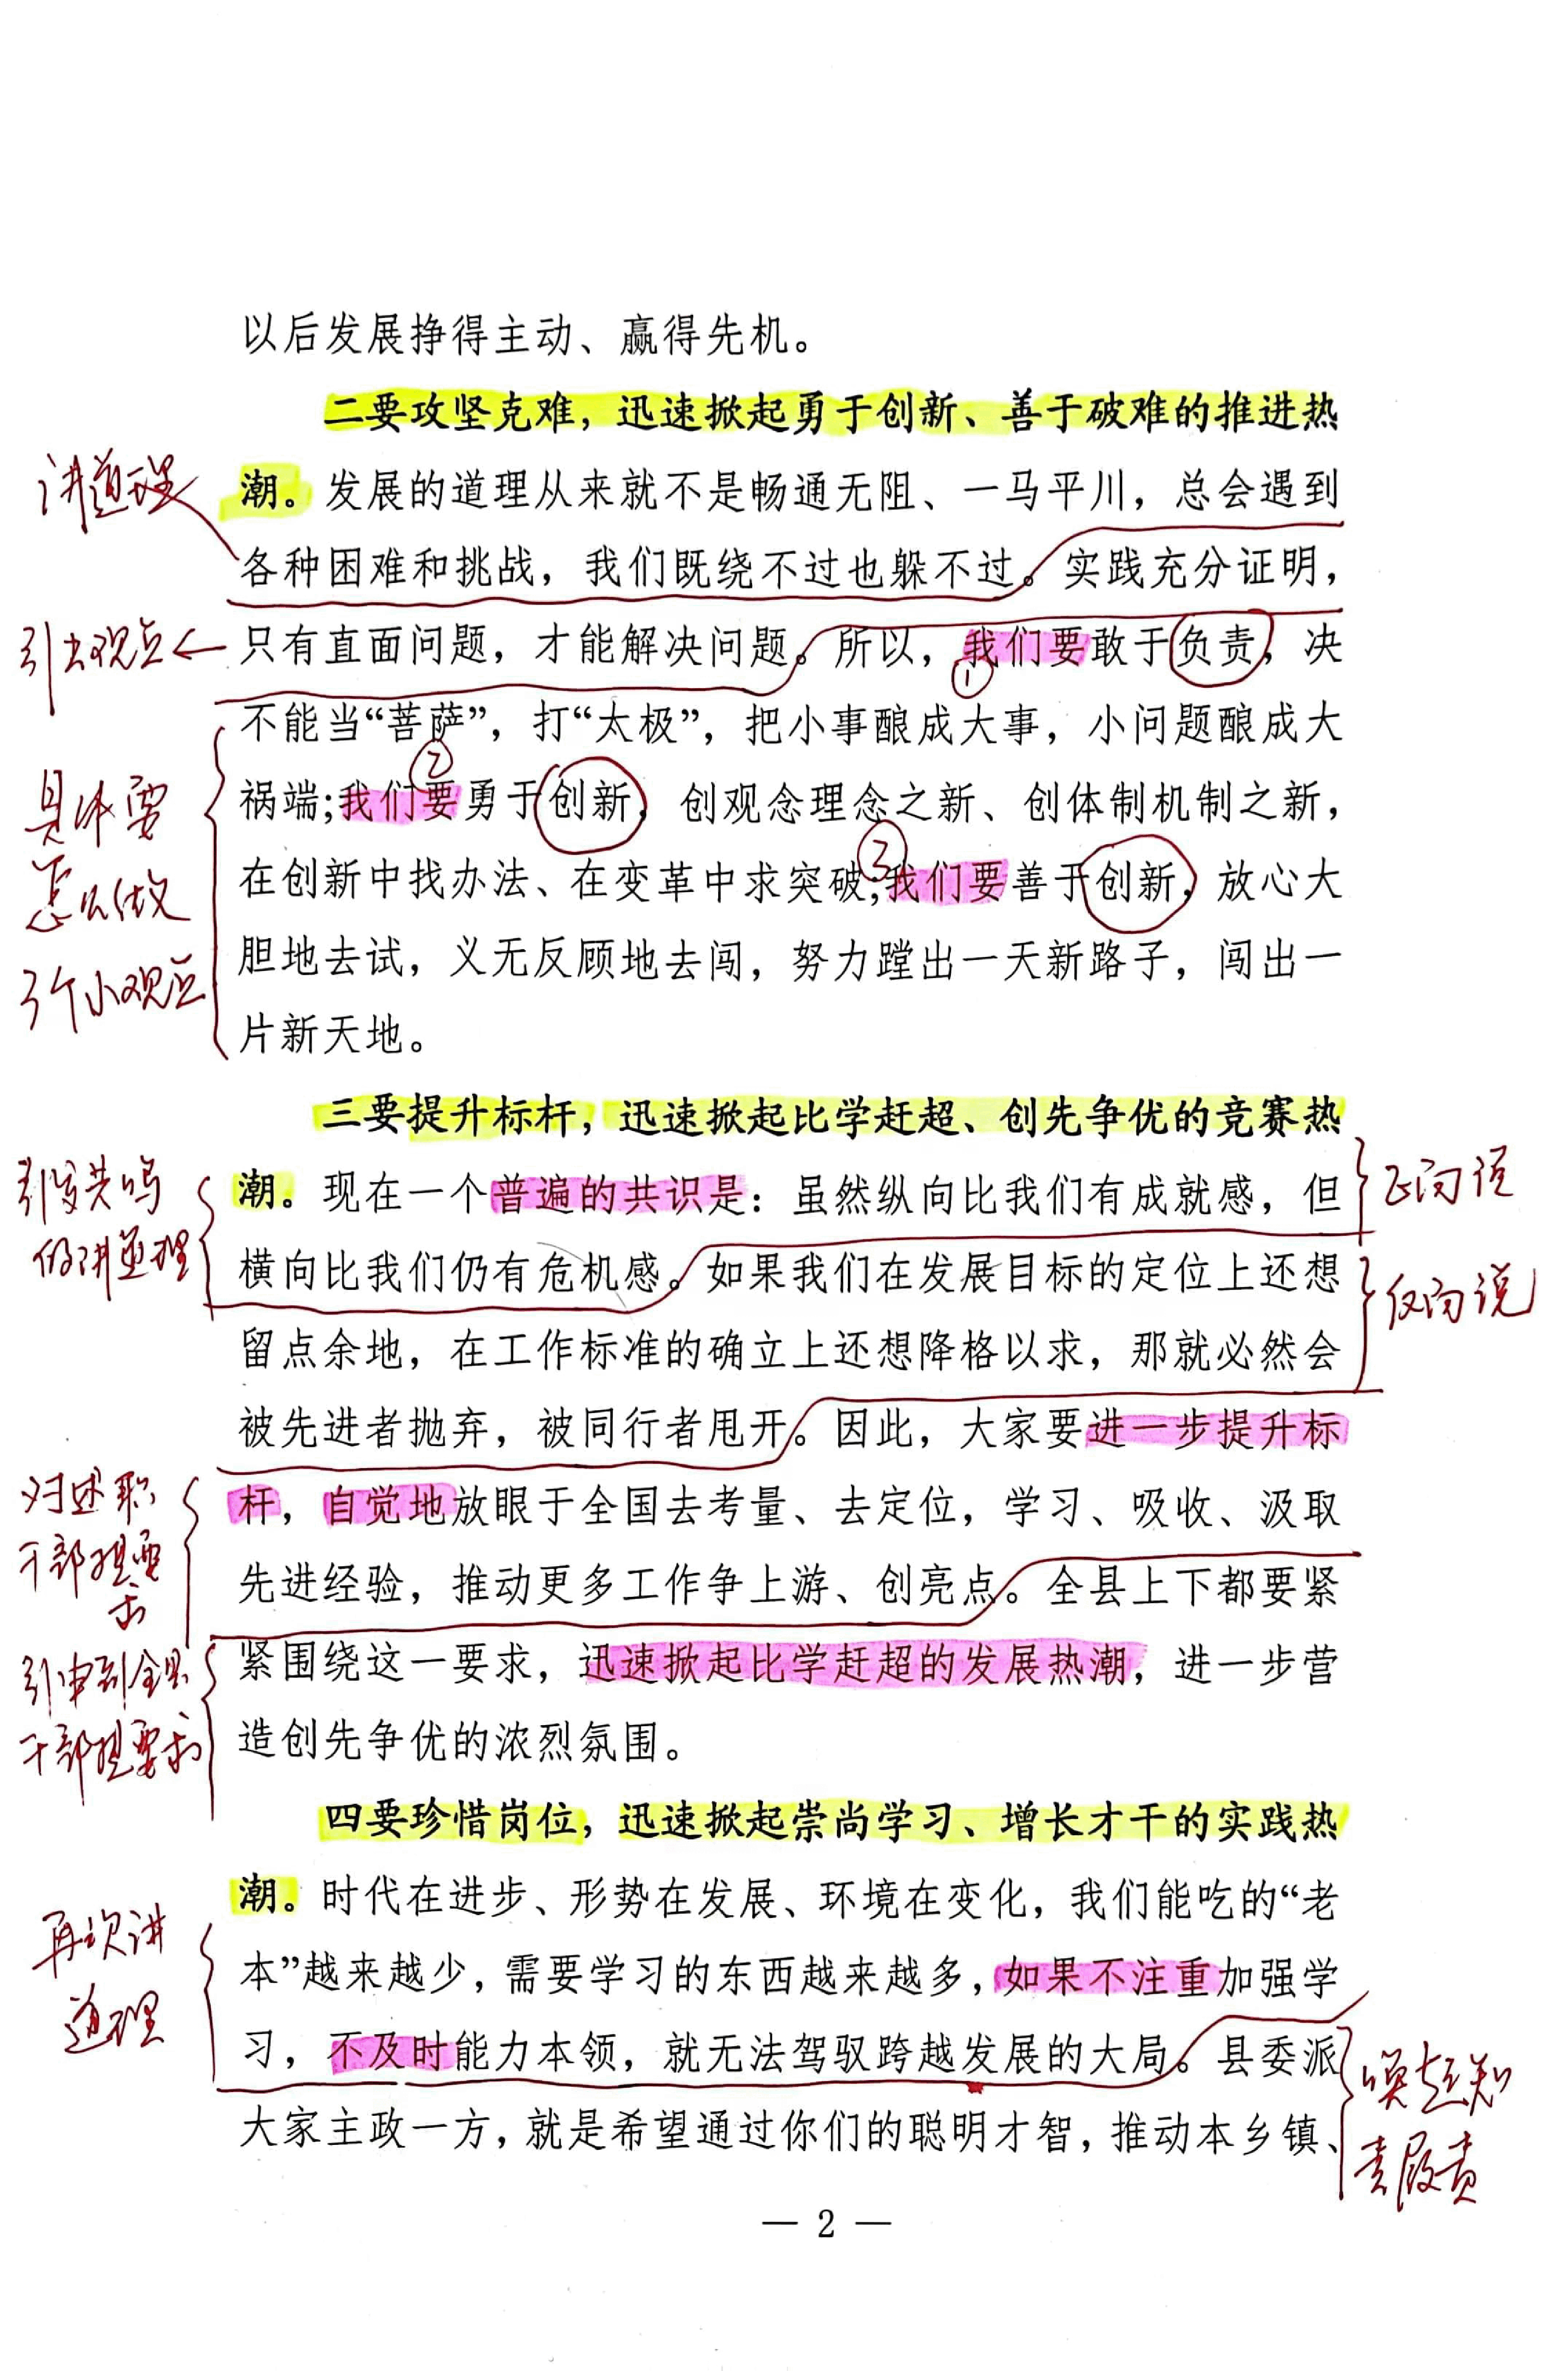 以后发展挣得主动、赢得先机。
二要攻坚克难，迅速掀起勇于创新、善于破难的推进热
讲道理
潮。发展的道理从来就不是畅通无阻、一马平川，总会遇到
各种困难和挑战，我们既绕不过也躲不过。实践充分证明，
引出观点
只有直面问题，才能解决问题。所以，我们要敢于负责，决
①
不能当“菩萨”，打“太极”，把小事酿成大事，小问题酿成大
②
具体要
怎么做
3个小观点
祸端;我们要勇于创新，创观念理念之新、创体制机制之新，
③
在创新中找办法、在变革中求突破;我们要善于创新，放心大
胆地去试，义无反顾地去闯，努力蹚出一天新路子，闯出一
片新天地。
三要提升标杆，迅速掀起比学赶超、创先争优的竞赛热
引发共鸣
似讲道理
潮。现在一个普遍的共识是：虽然纵向比我们有成就感，但
正向说
横向比我们仍有危机感。如果我们在发展目标的定位上还想
反向说
留点余地，在工作标准的确立上还想降格以求，那就必然会
被先进者抛弃，被同行者甩开。因此，大家要进一步提升标
对述职
干部提要
求
杆，自觉地放眼于全国去考量、去定位，学习、吸收、汲取
先进经验，推动更多工作争上游、创亮点。全县上下都要紧
引申到全县
干部提要求
紧围绕这一要求，迅速掀起比学赶超的发展热潮，进一步营
造创先争优的浓烈氛围。
四要珍惜岗位，迅速掀起崇尚学习、增长才干的实践热
再次讲
道理
潮。时代在进步、形势在发展、环境在变化，我们能吃的“老
本”越来越少，需要学习的东西越来越多，如果不注重加强学
习，不及时能力本领，就无法驾驭跨越发展的大局。县委派
唤起知
责履责
大家主政一方，就是希望通过你们的聪明才智，推动本乡镇、
— 2 —